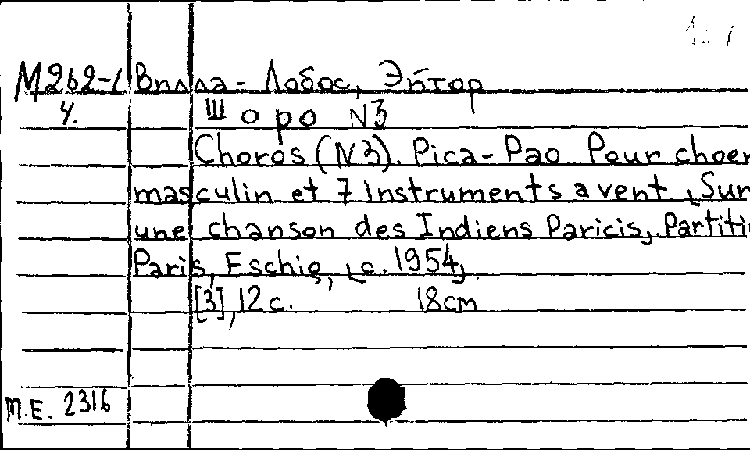 М262-1 Вилла-Лобос, Эйтор
4. Шоро N3
Choros (N3). Pica-Pao Pour choer
masculin et 7 Instruments a vent [Sur
une chanson des Indiens Paricis]. Partiti
Paris, Eschig, [c. 1954].
[3], 12 c. 18cm
М.Е. 2316